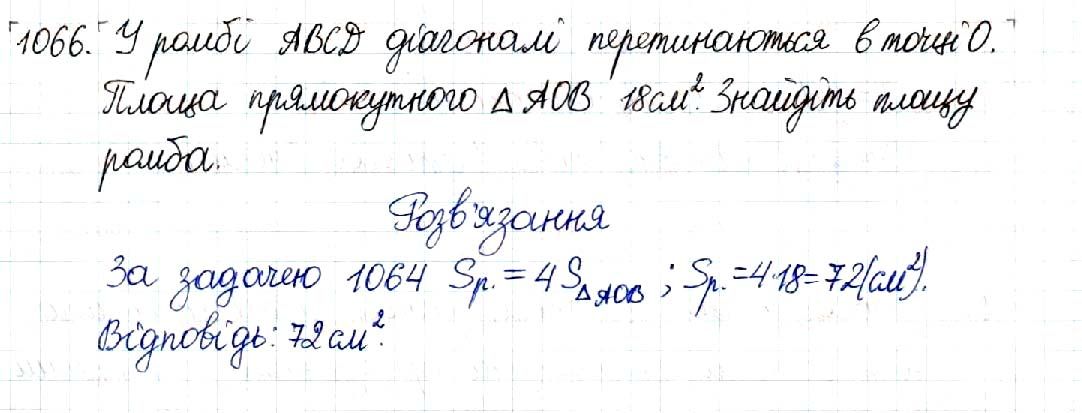 1066. У ромбі ABCD діагоналі перетинаються в точці O.
Площа прямокутного △ AOB 18 см². Знайдіть площу
ромба.
Розв'язання
За задачею 1064 Sр. = 4 S△ AOB ; Sр. = 4·18 = 72 (см²).
Відповідь: 72 см².